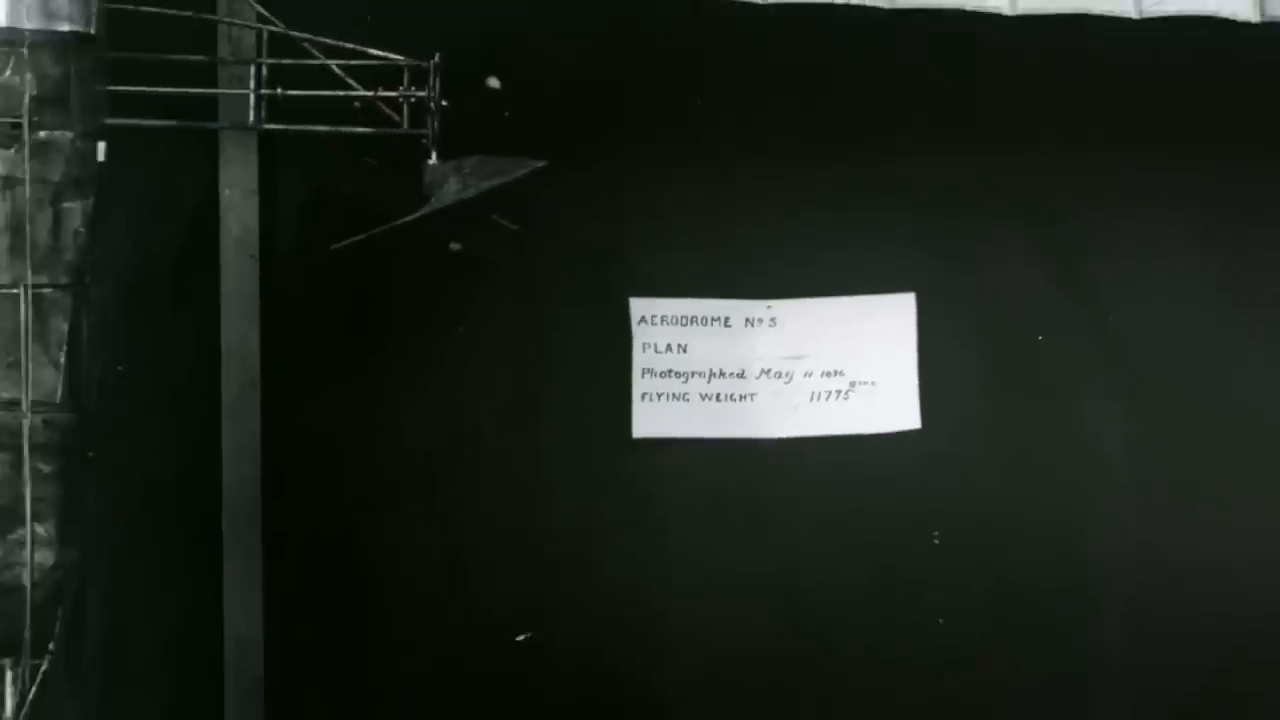 AERODROME Nº 5
PLAN
Photographed May 11 1896
FLYING WEIGHT 11775 gms.